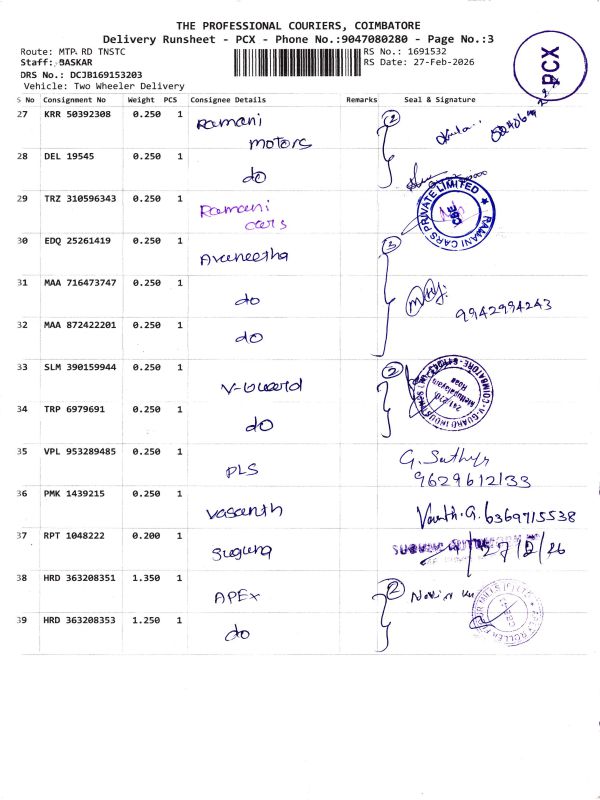 THE PROFESSIONAL COURIERS, COIMBATORE
Delivery Runsheet - PCX - Phone No.:9047080280 - Page No.:3
Route: MTP RD TNSTC
RS No.: 1691532
Staff: BASKAR
RS Date: 27-Feb-2026
DRS No.: DCJB169153203
Vehicle: Two Wheeler Delivery
PCX
S No Consignment No Weight PCS Consignee Details Remarks Seal & Signature
27 KRR 50392308 0.250 1 Ramani motors (2)
28 DEL 19545 0.250 1 do
29 TRZ 310596343 0.250 1 Ramani cars
RAMANI CARS PRIVATE LIMITED ★ CBE
30 EDQ 25261419 0.250 1 Avaneetha (3)
31 MAA 716473747 0.250 1 do 9942994243
32 MAA 872422201 0.250 1 do
33 SLM 390159944 0.250 1 V-Guard (2)
34 TRP 6979691 0.250 1 do
35 VPL 953289485 0.250 1 PLS G. Sathya 9629612133
36 PMK 1439215 0.250 1 Vasanth Vasanth.G. 6369715538
37 RPT 1048222 0.200 1 Suguna 27/2/26
38 HRD 363208351 1.350 1 APEX (2)
39 HRD 363208353 1.250 1 do